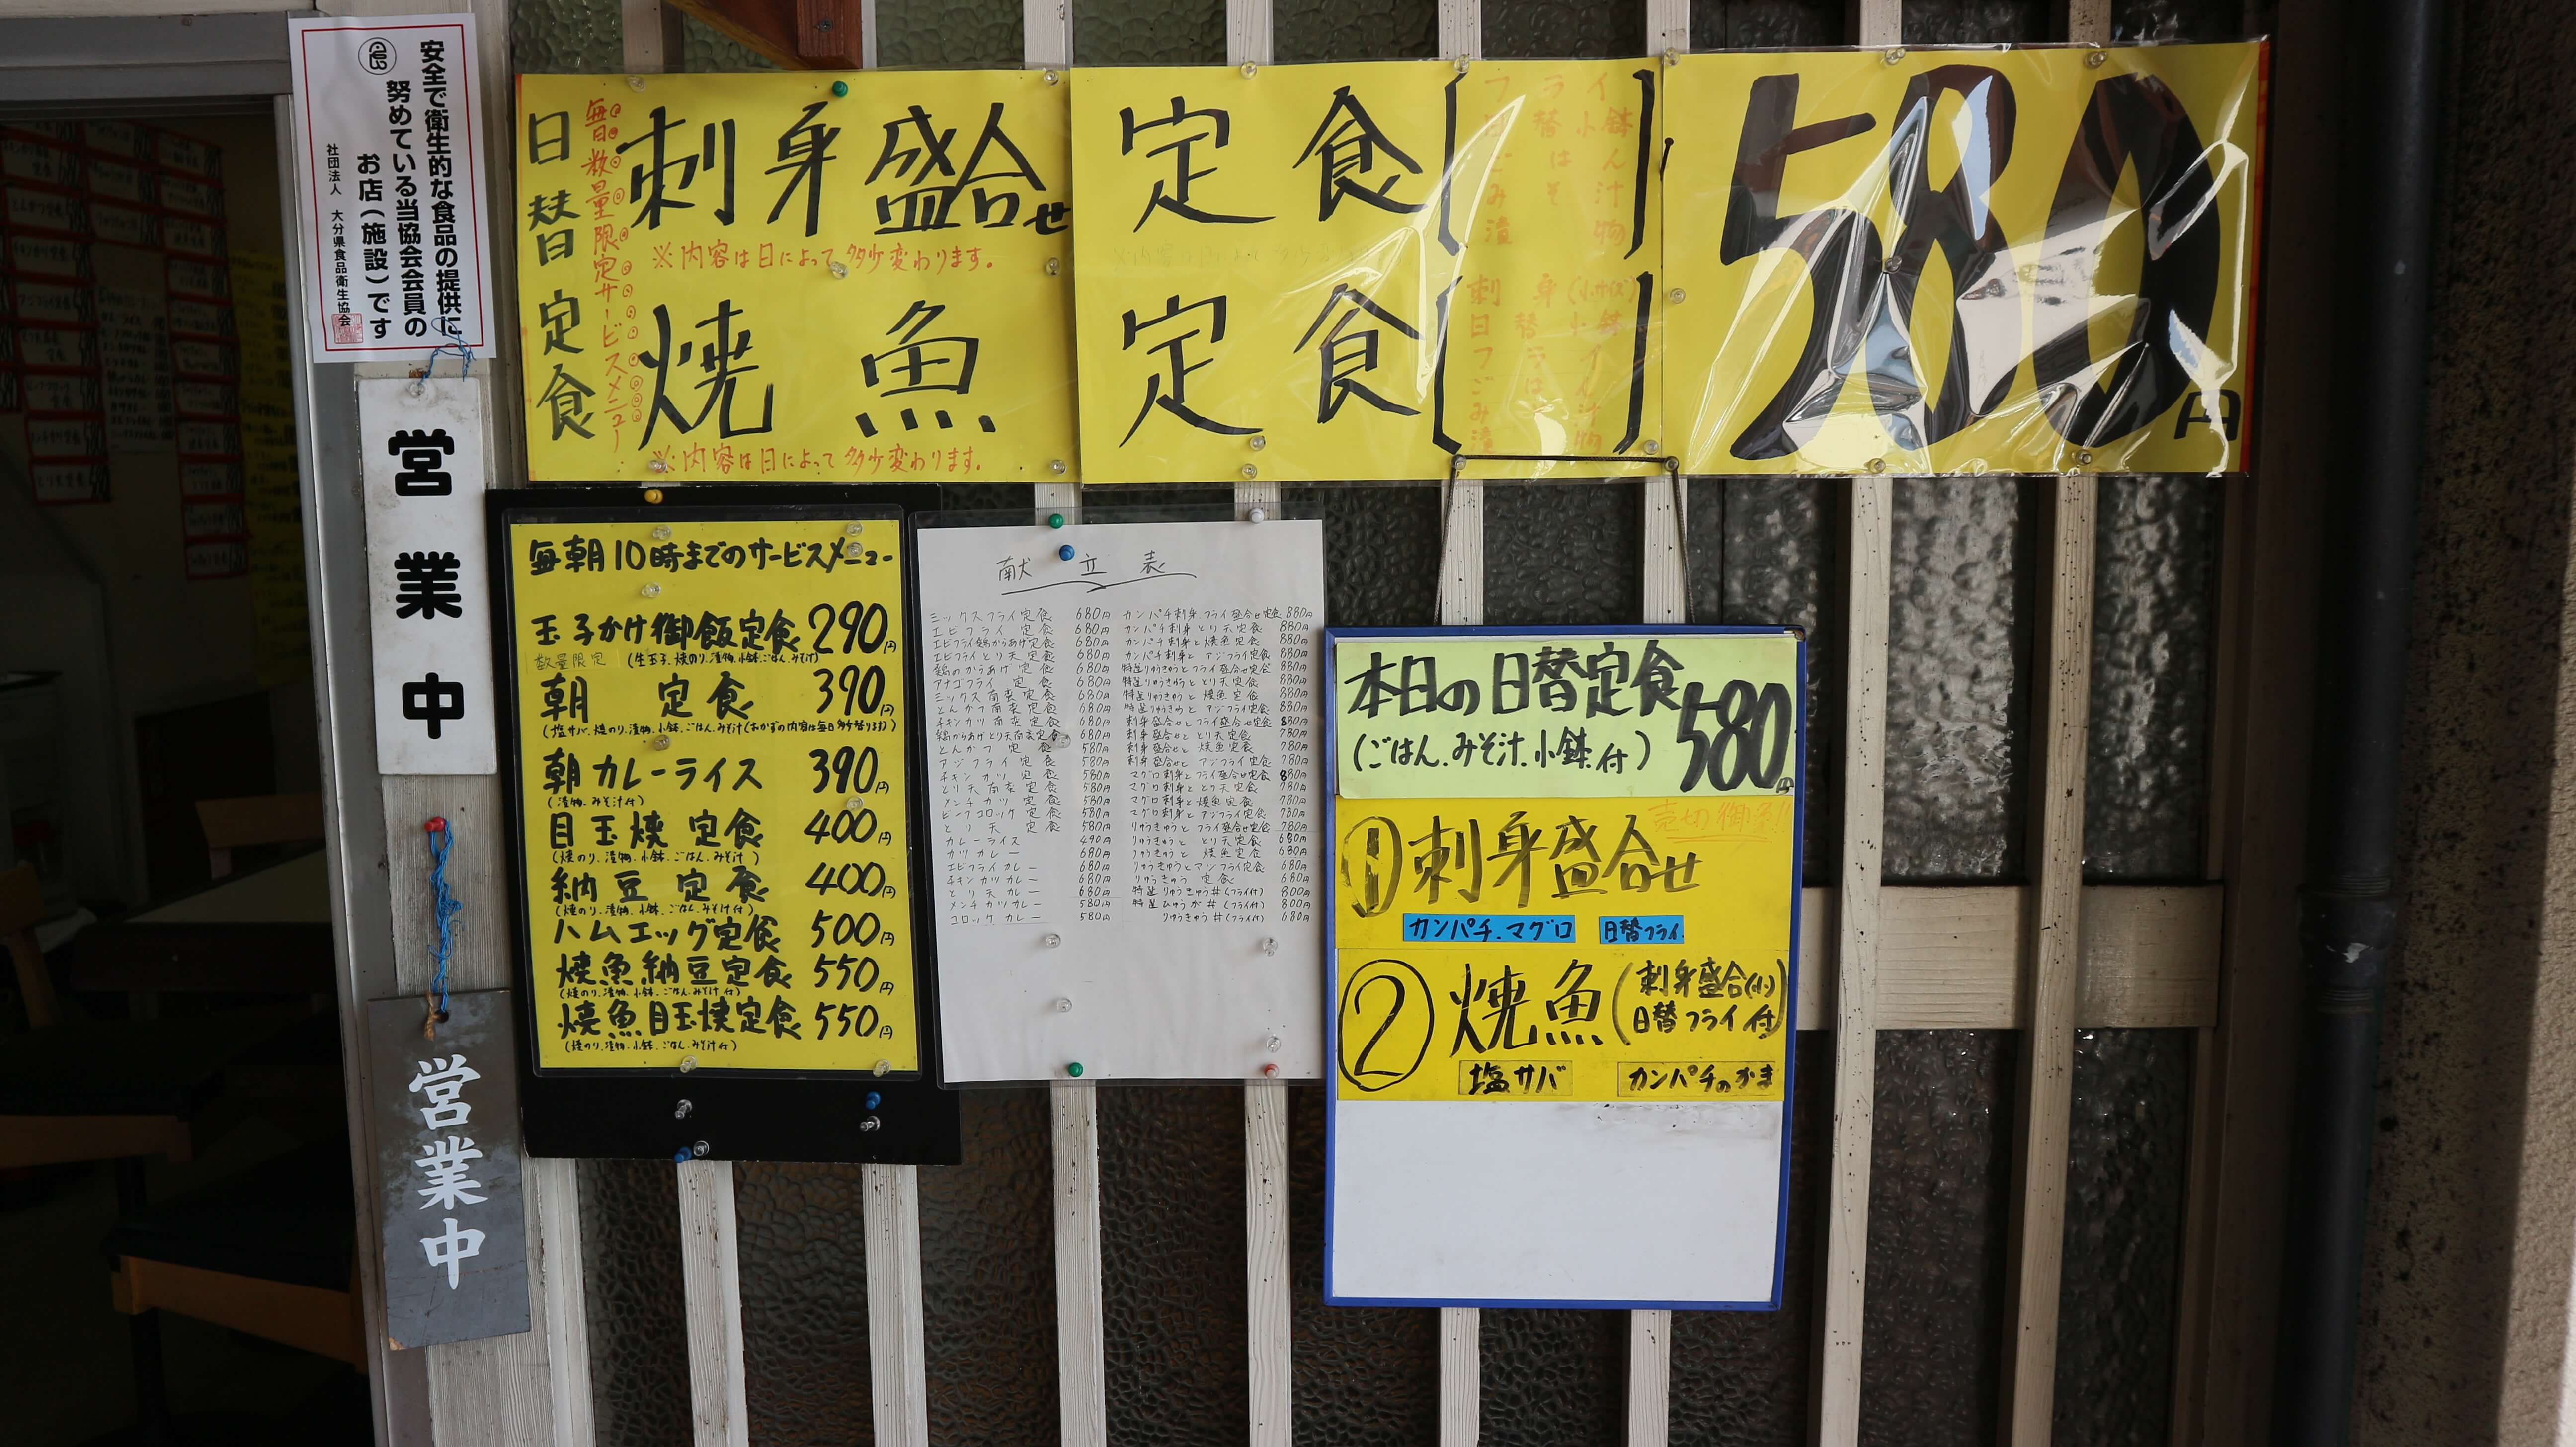 安全で衛生的な食品の提供に
努めている当協会会員の
お店(施設)です
社団法人 大分県食品衛生協会
営業中
営業中
日替定食
毎日数量限定サービスメニュー
刺身盛合せ定食
フライ小鉢
日替ごはんみそ汁漬物
※内容は日によって多少変わります。
焼魚定食
刺身(小サイズ)小鉢
日替フライごはんみそ汁漬物
※内容は日によって多少変わります。
580円
毎朝10時までのサービスメニュー
玉子かけ御飯定食 290円
数量限定 (生玉子、焼のり、漬物、小鉢、ごはん、みそ汁)
朝定食 390円
(塩サバ、焼のり、漬物、小鉢、ごはん、みそ汁(おかずの内容は毎日多少替ります))
朝カレーライス 390円
(漬物、みそ汁付)
目玉焼定食 400円
(焼のり、漬物、小鉢、ごはん、みそ汁)
納豆定食 400円
(焼のり、漬物、小鉢、ごはん、みそ汁付)
ハムエッグ定食 500円
焼魚納豆定食 550円
(焼のり、漬物、小鉢、ごはん、みそ汁付)
焼魚目玉焼定食 550円
(焼のり、漬物、小鉢、ごはん、みそ汁付)
献立表
ミックスフライ定食 680円
エビフライ定食 680円
エビフライ鶏からあげ定食 680円
エビフライとり天定食 680円
鶏のからあげ定食 680円
アナゴフライ定食 680円
ミックス南蛮定食 680円
とんかつ南蛮定食 680円
チキンカツ南蛮定食 680円
鶏からあげとり天南蛮定食 680円
とんかつ定食 580円
アジフライ定食 580円
チキンカツ定食 580円
とり天南蛮定食 580円
メンチカツ定食 580円
ビーフコロッケ定食 580円
とり天定食 580円
カレーライス 490円
カツカレー 680円
エビフライカレー 680円
チキンカツカレー 680円
とり天カレー 680円
メンチカツカレー 580円
コロッケカレー 580円
カンパチ刺身フライ盛合せ定食 880円
カンパチ刺身とり天定食 880円
カンパチ刺身と焼魚定食 880円
カンパチ刺身とアジフライ定食 880円
特選りゅうきゅうとフライ盛合せ定食 880円
特選りゅうきゅうととり天定食 880円
特選りゅうきゅうと焼魚定食 880円
特選りゅうきゅうとアジフライ定食 880円
刺身盛合せとフライ盛合せ定食 880円
刺身盛合せととり天定食 780円
刺身盛合せと焼魚定食 780円
刺身盛合せとアジフライ定食 780円
マグロ刺身とフライ盛合せ定食 880円
マグロ刺身ととり天定食 780円
マグロ刺身と焼魚定食 780円
マグロ刺身とアジフライ定食 780円
りゅうきゅうとフライ盛合せ定食 780円
りゅうきゅうととり天定食 680円
りゅうきゅうと焼魚定食 680円
りゅうきゅうとアジフライ定食 680円
りゅうきゅう定食 680円
特選りゅうきゅう丼(フライ付) 800円
特選ひゅうが丼(フライ付) 800円
りゅうきゅう丼(フライ付) 680円
本日の日替定食 580円
(ごはん、みそ汁、小鉢、付)
売切御免!!
①刺身盛合せ
カンパチ、マグロ 日替フライ
②焼魚(刺身盛合(小)日替フライ付)
塩サバ カンパチのかま